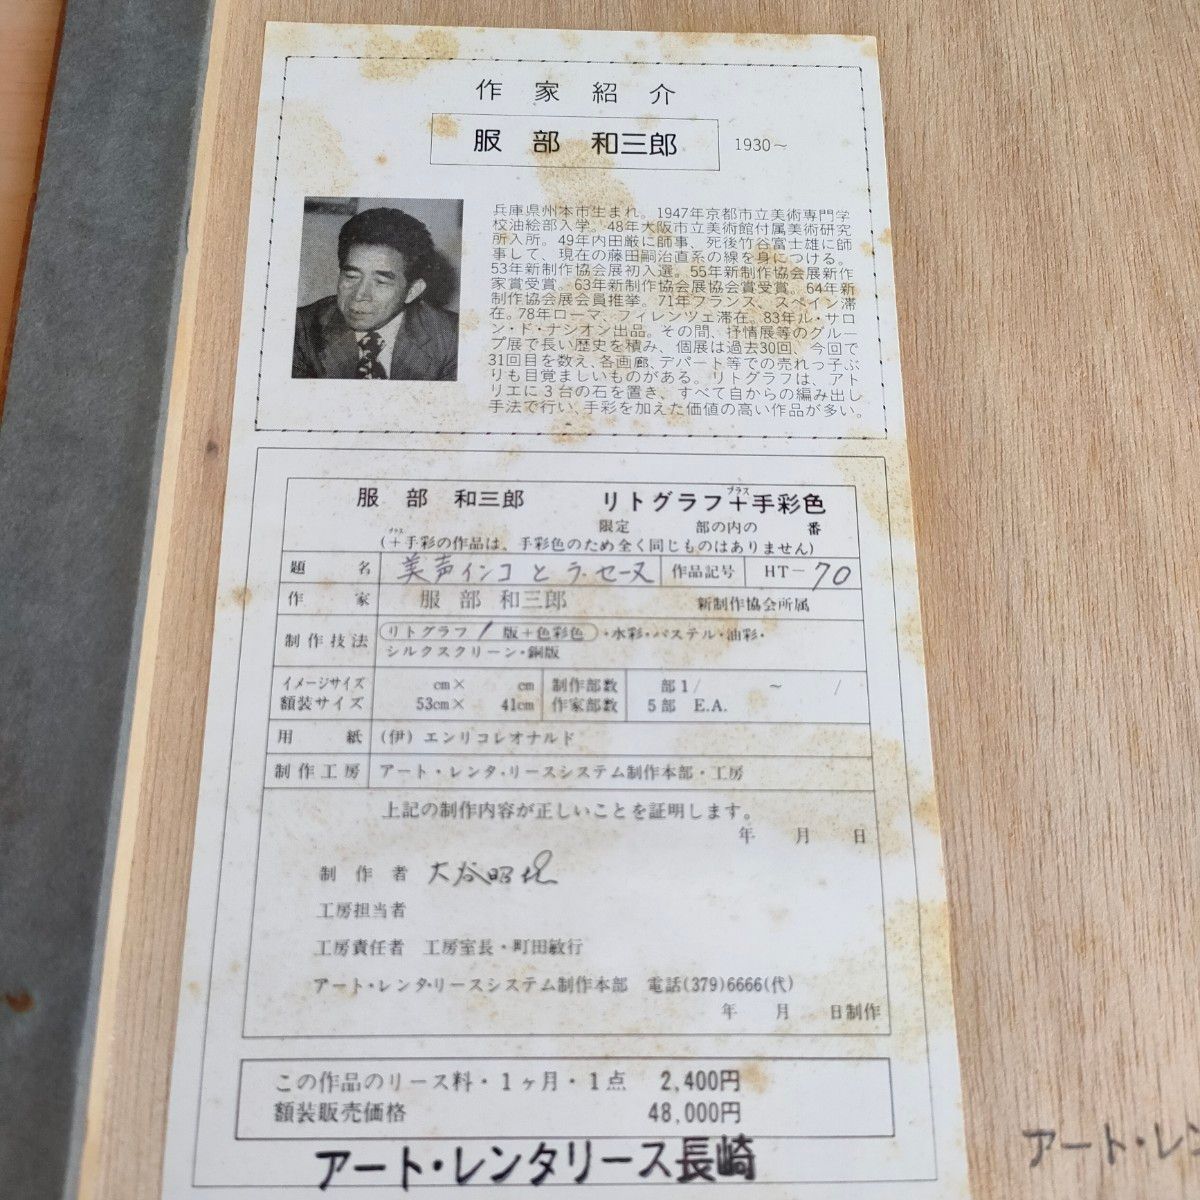 作家紹介
服部 和三郎 1930～
兵庫県州本市生まれ。1947年京都市立美術専門学
校油絵部入学。48年大阪市立美術館付属美術研究
所入所。49年内田厳に師事、死後竹谷富士雄に師
事して、現在の藤田嗣治直系の線を身につける。
53年新制作協会展初入選。55年新制作協会展新作
家賞受賞。63年新制作協会展協会賞受賞。64年新
制作協会展会員推挙。71年フランス、スペイン滞
在。78年ローマ、フィレンツェ滞在。83年ル・サロ
ン・ド・ナシオン出品。その間、抒情展等のグルー
プ展で長い歴史を積み、個展は過去30回、今回で
31回目を数え、各画廊、デパート等での売れっ子ぶ
りも目覚ましいものがある。リトグラフは、アト
リエに3台の石を置き、すべて自からの編み出し
手法で行い、手彩を加えた価値の高い作品が多い。
服部 和三郎 リトグラフ＋プラス手彩色
限定 部の内の 番
(＋プラス手彩の作品は、手彩色のため全く同じものはありません)
題名 美声インコとラ・セーヌ 作品記号 HT－70
作家 服部 和三郎 新制作協会所属
制作技法 リトグラフ 1 版＋色彩色・水彩・パステル・油彩・
シルクスクリーン・銅版
イメージサイズ cm× cm 制作部数 部1/ ～ /
額装サイズ 53cm× 41cm 作家部数 5部 E.A.
用紙 (伊) エンリコレオナルド
制作工房 アート・レンタ・リースシステム制作本部・工房
上記の制作内容が正しいことを証明します。
年 月 日
制作者 大谷昭
工房担当者
工房責任者 工房室長・町田敏行
アート・レンタ・リースシステム制作本部 電話(379)6666(代)
年 月 日制作
この作品のリース料・1ヶ月・1点 2,400円
額装販売価格 48,000円
アート・レンタリース長崎
アート・レン